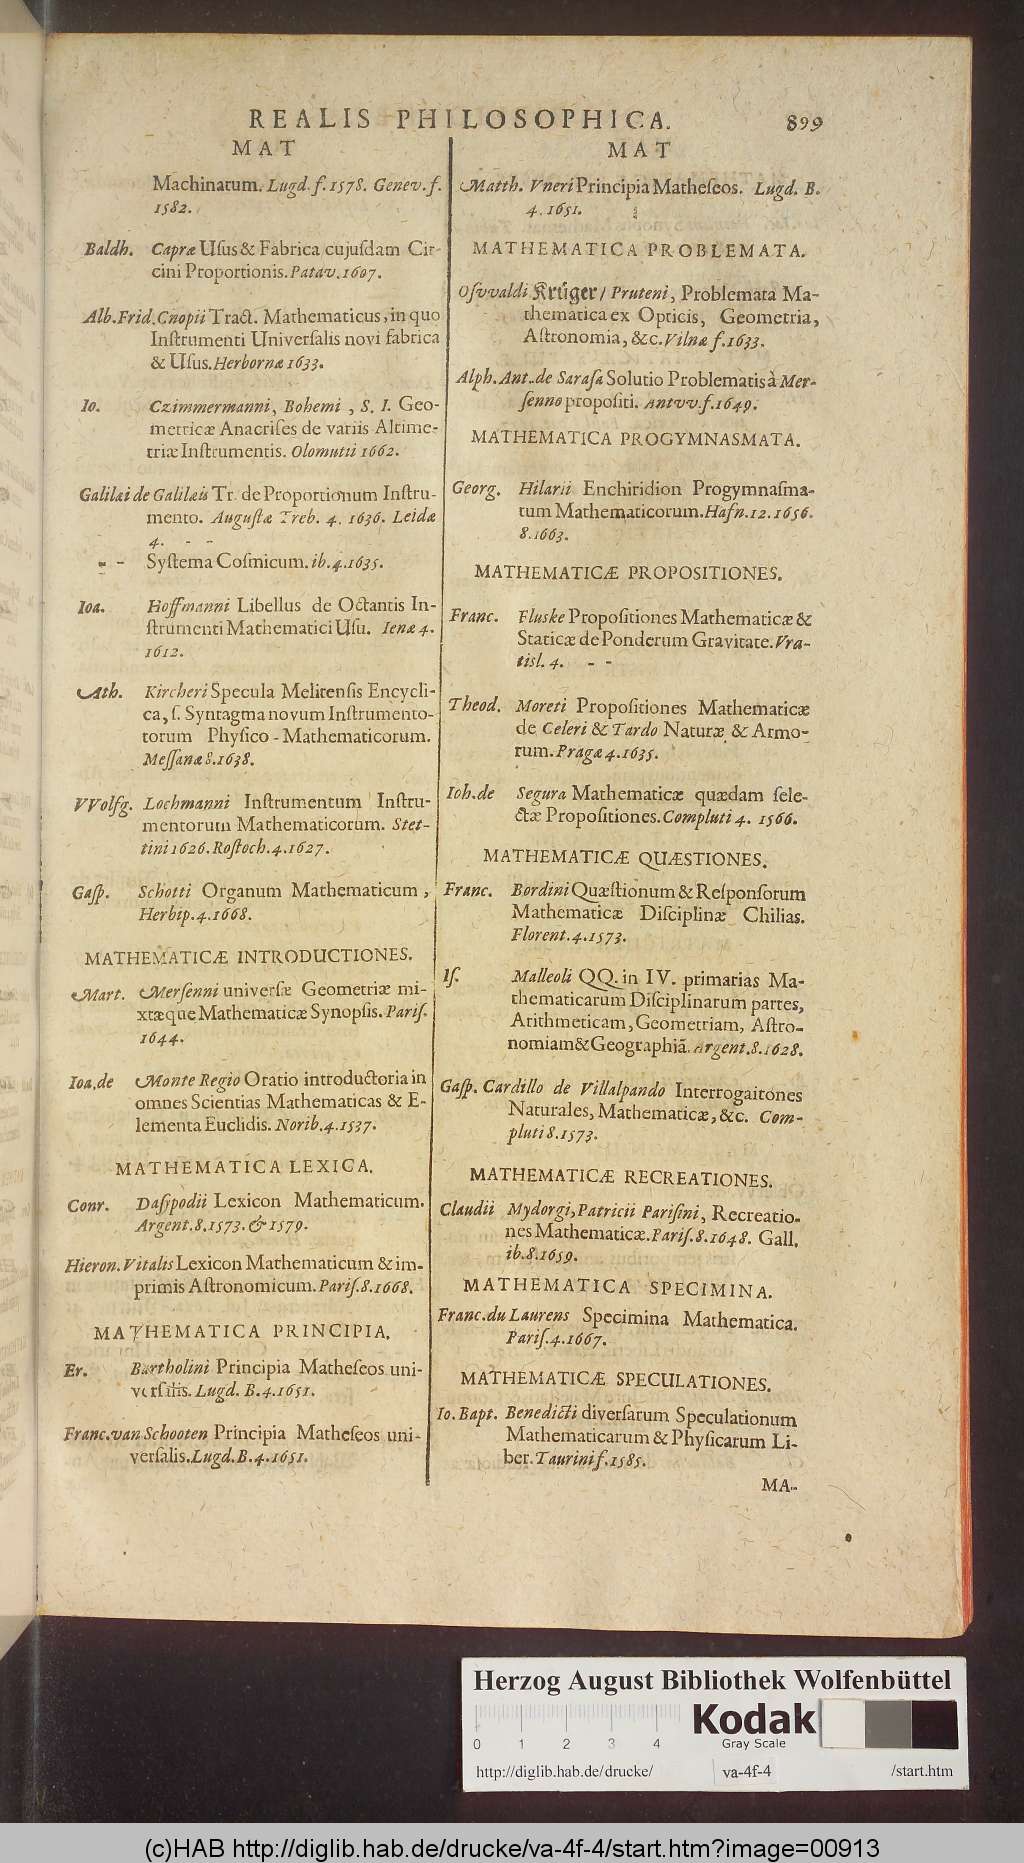 REALIS PHILOSOPHICA. 899
MAT
Machinatum. Lugd. f. 1578. Genev. f.
1582.
Baldh. Capræ Uſus & Fabrica cujuſdam Cir-
cini Proportionis. Patav. 1607.
Alb. Frid. Cnopii Tract. Mathematicus, in quo
Inſtrumenti Univerſalis novi fabrica
& Uſus. Herbornæ 1633.
Io. Czimmermanni, Bohemi, S. I. Geo-
metricæ Anacriſes de variis Altime-
triæ Inſtrumentis. Olomutii 1662.
Galilæi de Galilæis Tr. de Proportionum Inſtru-
mento. Auguſtæ Treb. 4. 1636. Leidæ
4. - -
- - Syſtema Coſmicum. ib. 4. 1635.
Ioa. Hoffmanni Libellus de Octantis In-
ſtrumenti Mathematici Uſu. Ienæ 4.
1612.
Ath. Kircheri Specula Melitenſis Encycli-
ca, ſ. Syntagma novum Inſtrumento-
torum Phyſico-Mathematicorum.
Meſſanæ 8. 1638.
VVolfg. Lochmanni Inſtrumentum Inſtru-
mentorum Mathematicorum. Stet-
tini 1626. Roſtoch. 4. 1627.
Gaſp. Schotti Organum Mathematicum,
Herbip. 4. 1668.
MATHEMATICÆ INTRODUCTIONES.
Mart. Merſenni univerſæ Geometriæ mi-
xtæque Mathematicæ Synopſis. Pariſ.
1644.
Ioa. de Monte Regio Oratio introductoria in
omnes Scientias Mathematicas & E-
lementa Euclidis. Norib. 4. 1537.
MATHEMATICA LEXICA.
Conr. Daſypodii Lexicon Mathematicum.
Argent. 8. 1573. & 1579.
Hieron. Vitalis Lexicon Mathematicum & im-
primis Aſtronomicum. Pariſ. 8. 1668.
MATHEMATICA PRINCIPIA.
Er. Bartholini Principia Matheſeos uni-
verſalis. Lugd. B. 4. 1651.
Franc. van Schooten Principia Matheſeos uni-
verſalis. Lugd. B. 4. 1651.
MAT
Matth. Vneri Principia Matheſeos. Lugd. B.
4. 1651.
MATHEMATICA PROBLEMATA.
Oſvvaldi Krüger / Pruteni, Problemata Ma-
thematica ex Opticis, Geometria,
Aſtronomia, &c. Vilnæ f. 1633.
Alph. Ant. de Saraſa Solutio Problematis à Mer-
ſenno propoſiti. Antvv. f. 1649.
MATHEMATICA PROGYMNASMATA.
Georg. Hilarii Enchiridion Progymnaſma-
tum Mathematicorum. Hafn. 12. 1656.
8. 1663.
MATHEMATICÆ PROPOSITIONES.
Franc. Fluske Propoſitiones Mathematicæ &
Staticæ de Ponderum Gravitate. Vra-
tisl. 4. - -
Theod. Moreti Propoſitiones Mathematicæ
de Celeri & Tardo Naturæ & Armo-
rum. Pragæ 4. 1635.
Ioh. de Segura Mathematicæ quædam ſele-
ctæ Propoſitiones. Compluti 4. 1566.
MATHEMATICÆ QUÆSTIONES.
Franc. Bordini Quæſtionum & Reſponſorum
Mathematicæ Diſciplinæ Chilias.
Florent. 4. 1573.
Iſ. Malleoli QQ. in IV. primarias Ma-
thematicarum Diſciplinarum partes,
Arithmeticam, Geometriam, Aſtro-
nomiam & Geographiã. Argent. 8. 1628.
Gaſp. Cardillo de Villalpando Interrogaitones
Naturales, Mathematicæ, &c. Com-
pluti 8. 1573.
MATHEMATICÆ RECREATIONES.
Claudii Mydorgi, Patricii Pariſini, Recreatio-
nes Mathematicæ. Pariſ. 8. 1648. Gall.
ib. 8. 1659.
MATHEMATICA SPECIMINA.
Franc. du Laurens Specimina Mathematica.
Pariſ. 4. 1667.
MATHEMATICÆ SPECULATIONES.
Io. Bapt. Benedicti diverſarum Speculationum
Mathematicarum & Phyſicarum Li-
ber. Taurini f. 1585.
MA-
Herzog August Bibliothek Wolfenbüttel
0 1 2 3 4
Kodak
Gray Scale
http://diglib.hab.de/drucke/ va-4f-4 /start.htm
(c)HAB http://diglib.hab.de/drucke/va-4f-4/start.htm?image=00913